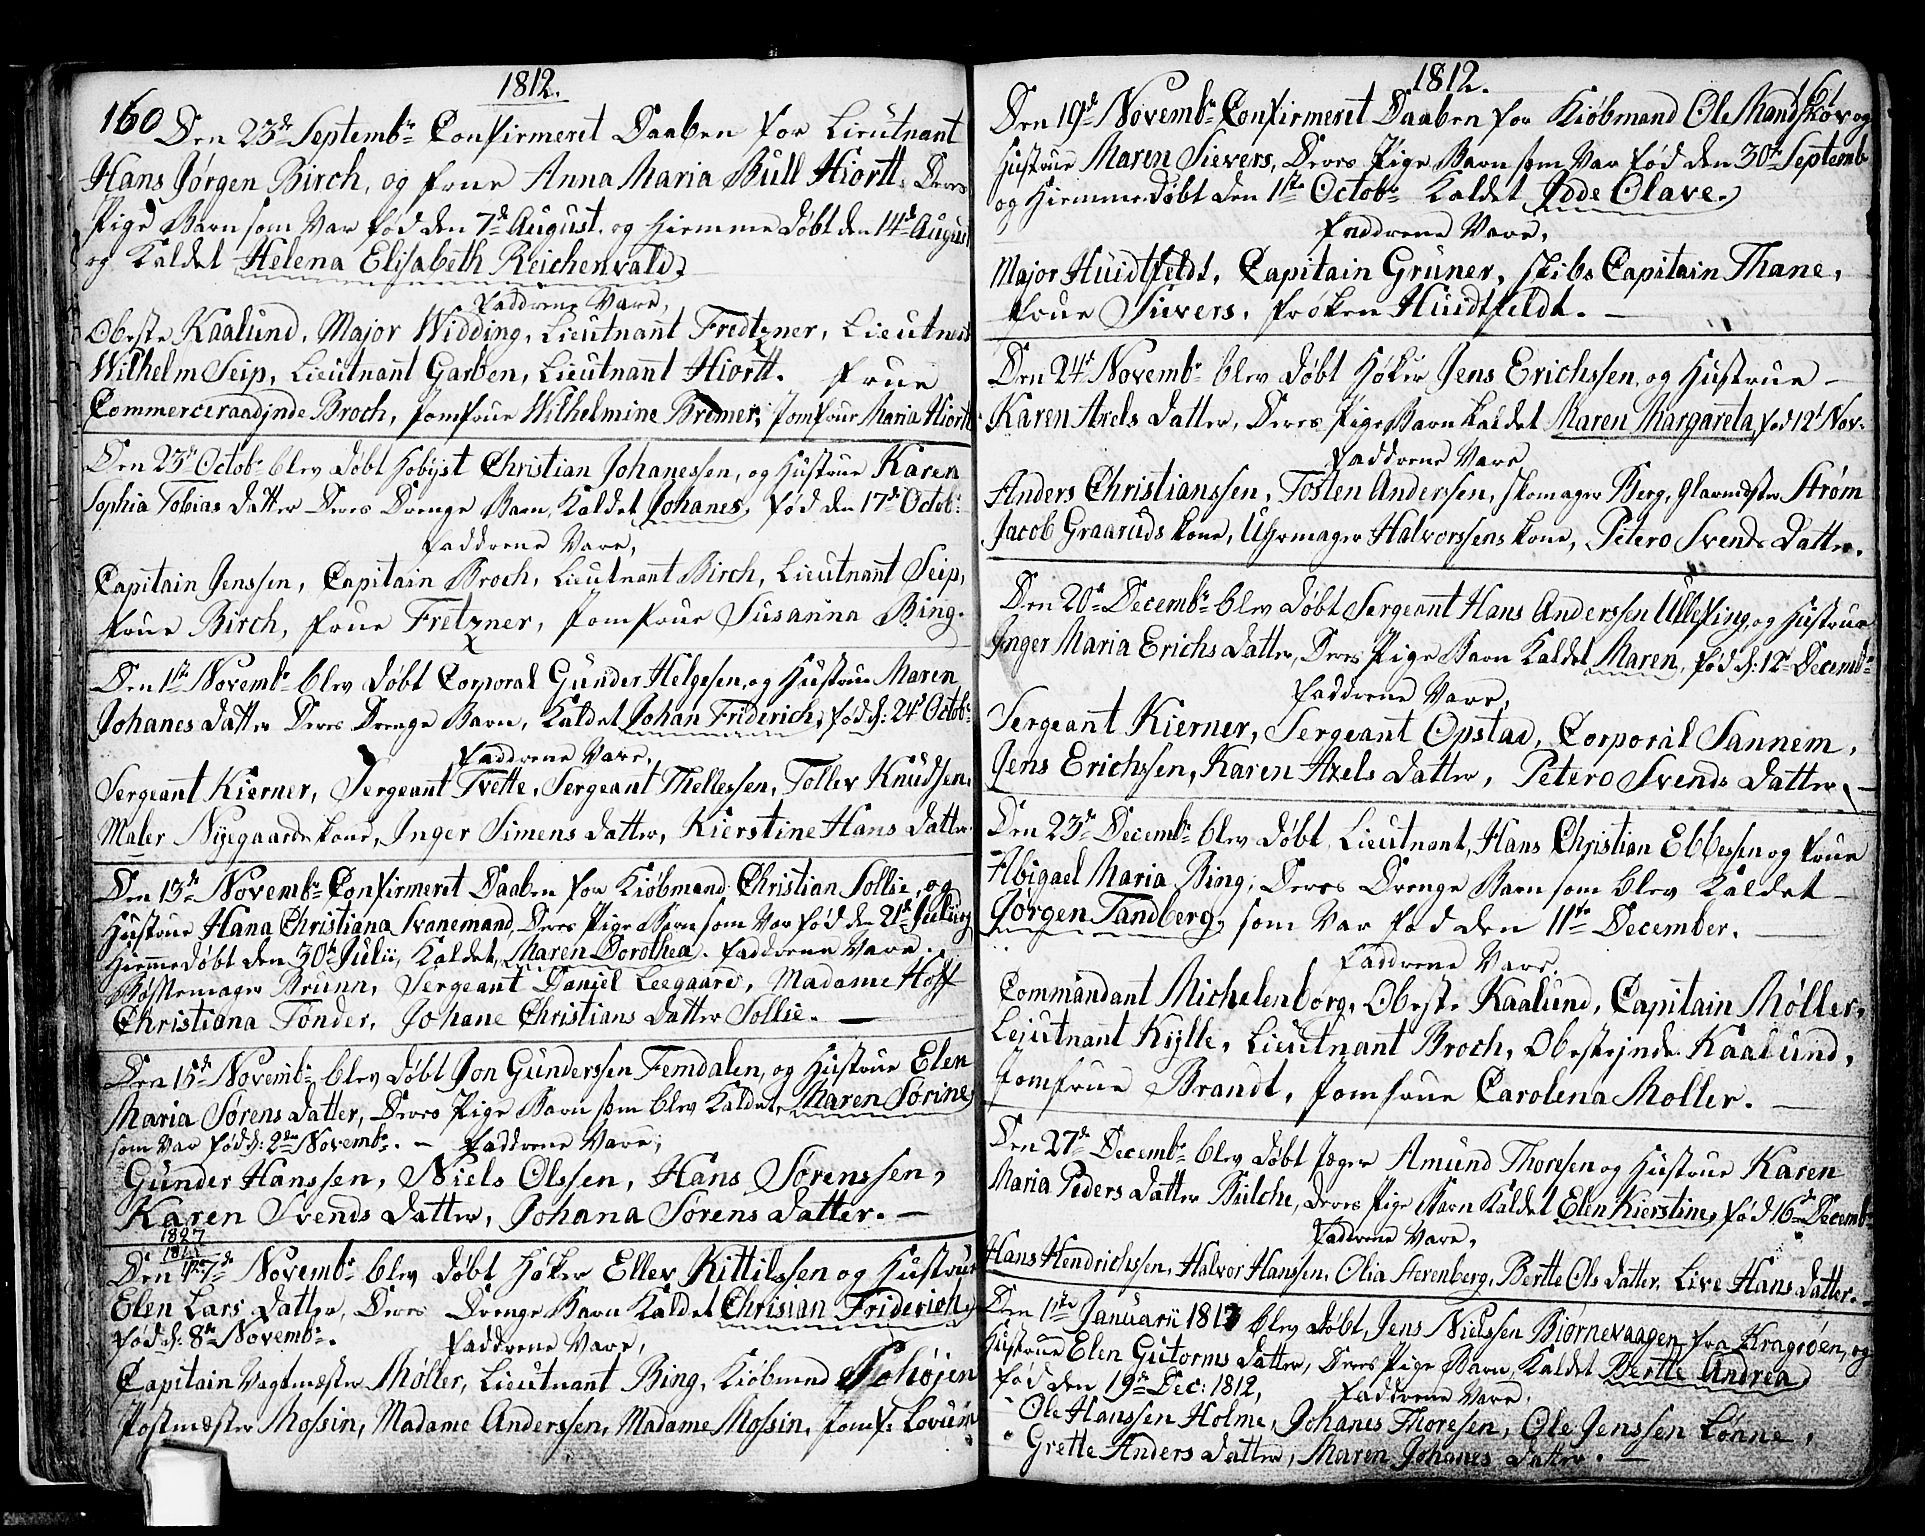 1812.
160 Den 23de Septembr Confirmeret Daaben for Lieutnant
Hans Jørgen Birch, og frue Anna Maria Bull Hiortt, Deres
Pige Barn som Var fød den 7de August. og hiemme døbt den 14de August
og Kaldet Helena Elisabeth Reichenvald.
Faddrene Vare,
Obeste Kaalund, Major Widding, Lieutnant Fredtzner, Lieutnant
Wilhelm Seip, Lieutnant Garben, Lieutnant Hiortt. frue
Commerceraadinde Broch, Jomfrue Wilhelmine Bremer, Jomfrue Maria Hiortt
Den 23de Octobr blev døbt Hobijst Christian Johanessen, og Hustrue Karen
Sophia Tobias datter Deres Drenge Barn, Kaldet Johanes, fød den 17de Octobr
Faddrene Vare,
Capitain Jenssen, Capitain Broch, Lieutnant Birch, Lieutnant Seip,
frue Birch, frue Fretzner, Jomfrue Susanna Bing.
Den 1ste Novembr blev døbt Corporal Gunder Helgesen, og Hustrue Maren
Johanes datter Deres Drenge Barn, Kaldet Johan Friderich, fød d: 24de Octobr
Faddrene Vare,
Sergeant Kierner, Sergeant Tvette, Sergeant Thellessen, Tollev Knudsen,
Maler Nyegaards kone, Inger Simens datter, Kierstine Hans datter.
Den 13de Novembr Confirmeret Daaben for Kiøbmand Christian Sollie, og
Hustrue Hana Christiana Svanemand, Deres Pige Barn som Var fød den 21de Julii og
hiemme døbt den 30te Julii, Kaldet, Maren Dorothea. Faddrene Vare.
Bøssemager Brunn, Sergeant Daniel Leegaard, Madame Hoff
Christiana Tønder, Johane Christians datter Sollie.
Den 15de Novembr blev døbt Jon Gunderssen Femdalen, og Hustrue Elen
Maria Sørens datter, Deres Pige Barn som blev Kaldet, Maren Sorine,
som Var fød d: 2den Novembr. Faddrene Vare,
Gunder Hanssen, Niels Olssen, Hans Sørenssen,
Karen Svends datter, Johana Sørens datter.
1827
1812
Den 17de Novembr blev døbt Høker Ellev Kittilssen og Hustrue
Elen Lars datter, Deres Drenge Barn Kaldet Chrisian Friderich,
fød d: 8de Novembr. Faddrene Vare,
Capitain Vagtmæster Møller, Lieutnant Bing, Kiøbmand Schøjen
Postmæster Mossin, Madame Anderssen, Madame Mossin, Jomf: Lovum
1812.
161
Den 19de Novembr Confirmeret Daaben for Kiøbmand Ole Mandskov og
Hustrue Maren Sievers, Deres Pige Barn som Var fød den 30te Septemb
og hiemme døbt den 1ste Octobr Kaldet Jdde Olave.
Faddrene Vare,
Major Huidtfeldt, Capitain Gruner, skibs Capitain Thane,
frue Sievers, frøken Huidtfeldt.
Den 24de Novembr blev døbt Høker Jens Erichssen, og Hustrue
Karen Axels datter, Deres Pige Barn kaldet Maren Margareta, fød 12te Nov.
Faddrene Vare
Anders Christianssen, Tosten Anderssen, skomager Berg, glarmester Strøm
Jacob Graaruds kone, Uhrmager Halvorssens kone, Petero Svends datter.
Den 20de Decembr blev døbt Sergeant Hans Anderssen Ullefing, og Hustrue
Inger Maria Erichs datter, Deres Pige Barn Kaldet Maren, fød d: 12te Decembr
Faddrene Vare,
Sergeant Kierner, Sergeant Opstad, Corporal Sannem,
Jens Erichssen, Karen Axels datter, Petero Svends datter,
Den 23de Decembr blev døbt, Lieutnant, Hans Christian Ebbessen og frue
Abigael Maria Bing, Deres Drenge Barn som blev Kaldet
Jørgen Tandberg, som Var fød den 11te December.
Faddrene Vare.
Commandant Michelenborg, Obeste Kaalund, Capitain Møller,
Lejutnant Kylle, Lieutnant Broch, Obestinde Kaalund,
Jomfrue Brandt, Jomfrue Carolena Moller.
Den 27de Decembr blev døbt Jæger Amund Thoresen og Hustrue Karen
Maria Peders datter Bulche, deres Pige Barn Kaldet Elen Kierstine, fød 16de Decembr
Faddrene Vare,
Hans Hendrichssen, Halvor Hanssen, Olia Sterenberg, Bertte Ols datter, Live Hans datter.
Den 1ste Januarii 1813 blev døbt, Jens Nielssen Biørnevaagen, fra Kragrøen, og
Hustrue Elen Gutorms datter, Deres Pige Barn, Kaldet Bertte Andrea
fød den 19de Dec: 1812, Faddrene Vare.
Ole Hanssen Holme, Johanes Thoresen, Ole Jenssen Lønne,
Grette Anders datter, Maren Johanes datter.